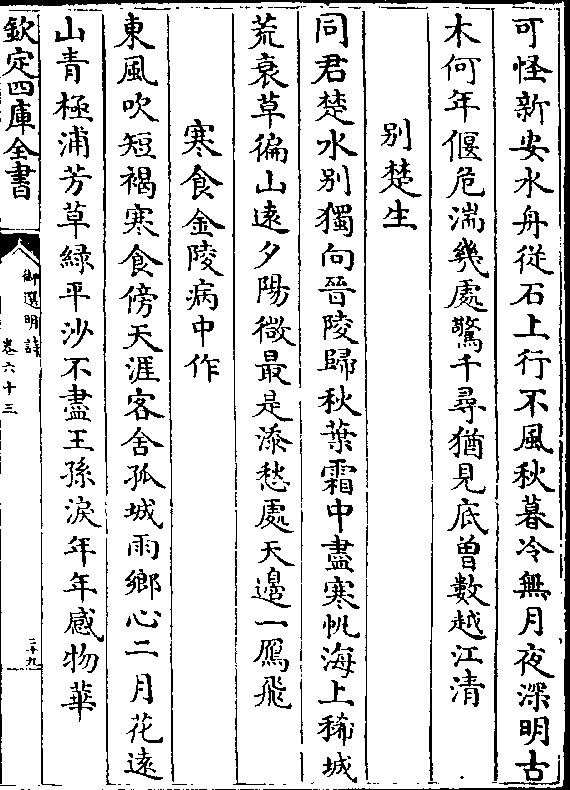 可怪新安水舟從石上行不風秋暮冷無月夜深明古
木何年偃危湍幾處驚千尋猶見底曾數越江清
别楚生
同君楚水别獨向晉陵歸秋葉霜中盡寒帆海上稀城
荒衰草徧山遠夕陽微最是添愁處天邊一鴈飛
寒食金陵病中作
東風吹短褐寒食傍天涯客舍孤城雨鄉心二月花遠
山青極浦芳草緑平沙不盡王孫淚年年感物華
欽定四庫全書
御選明詩
卷六十三
三十九